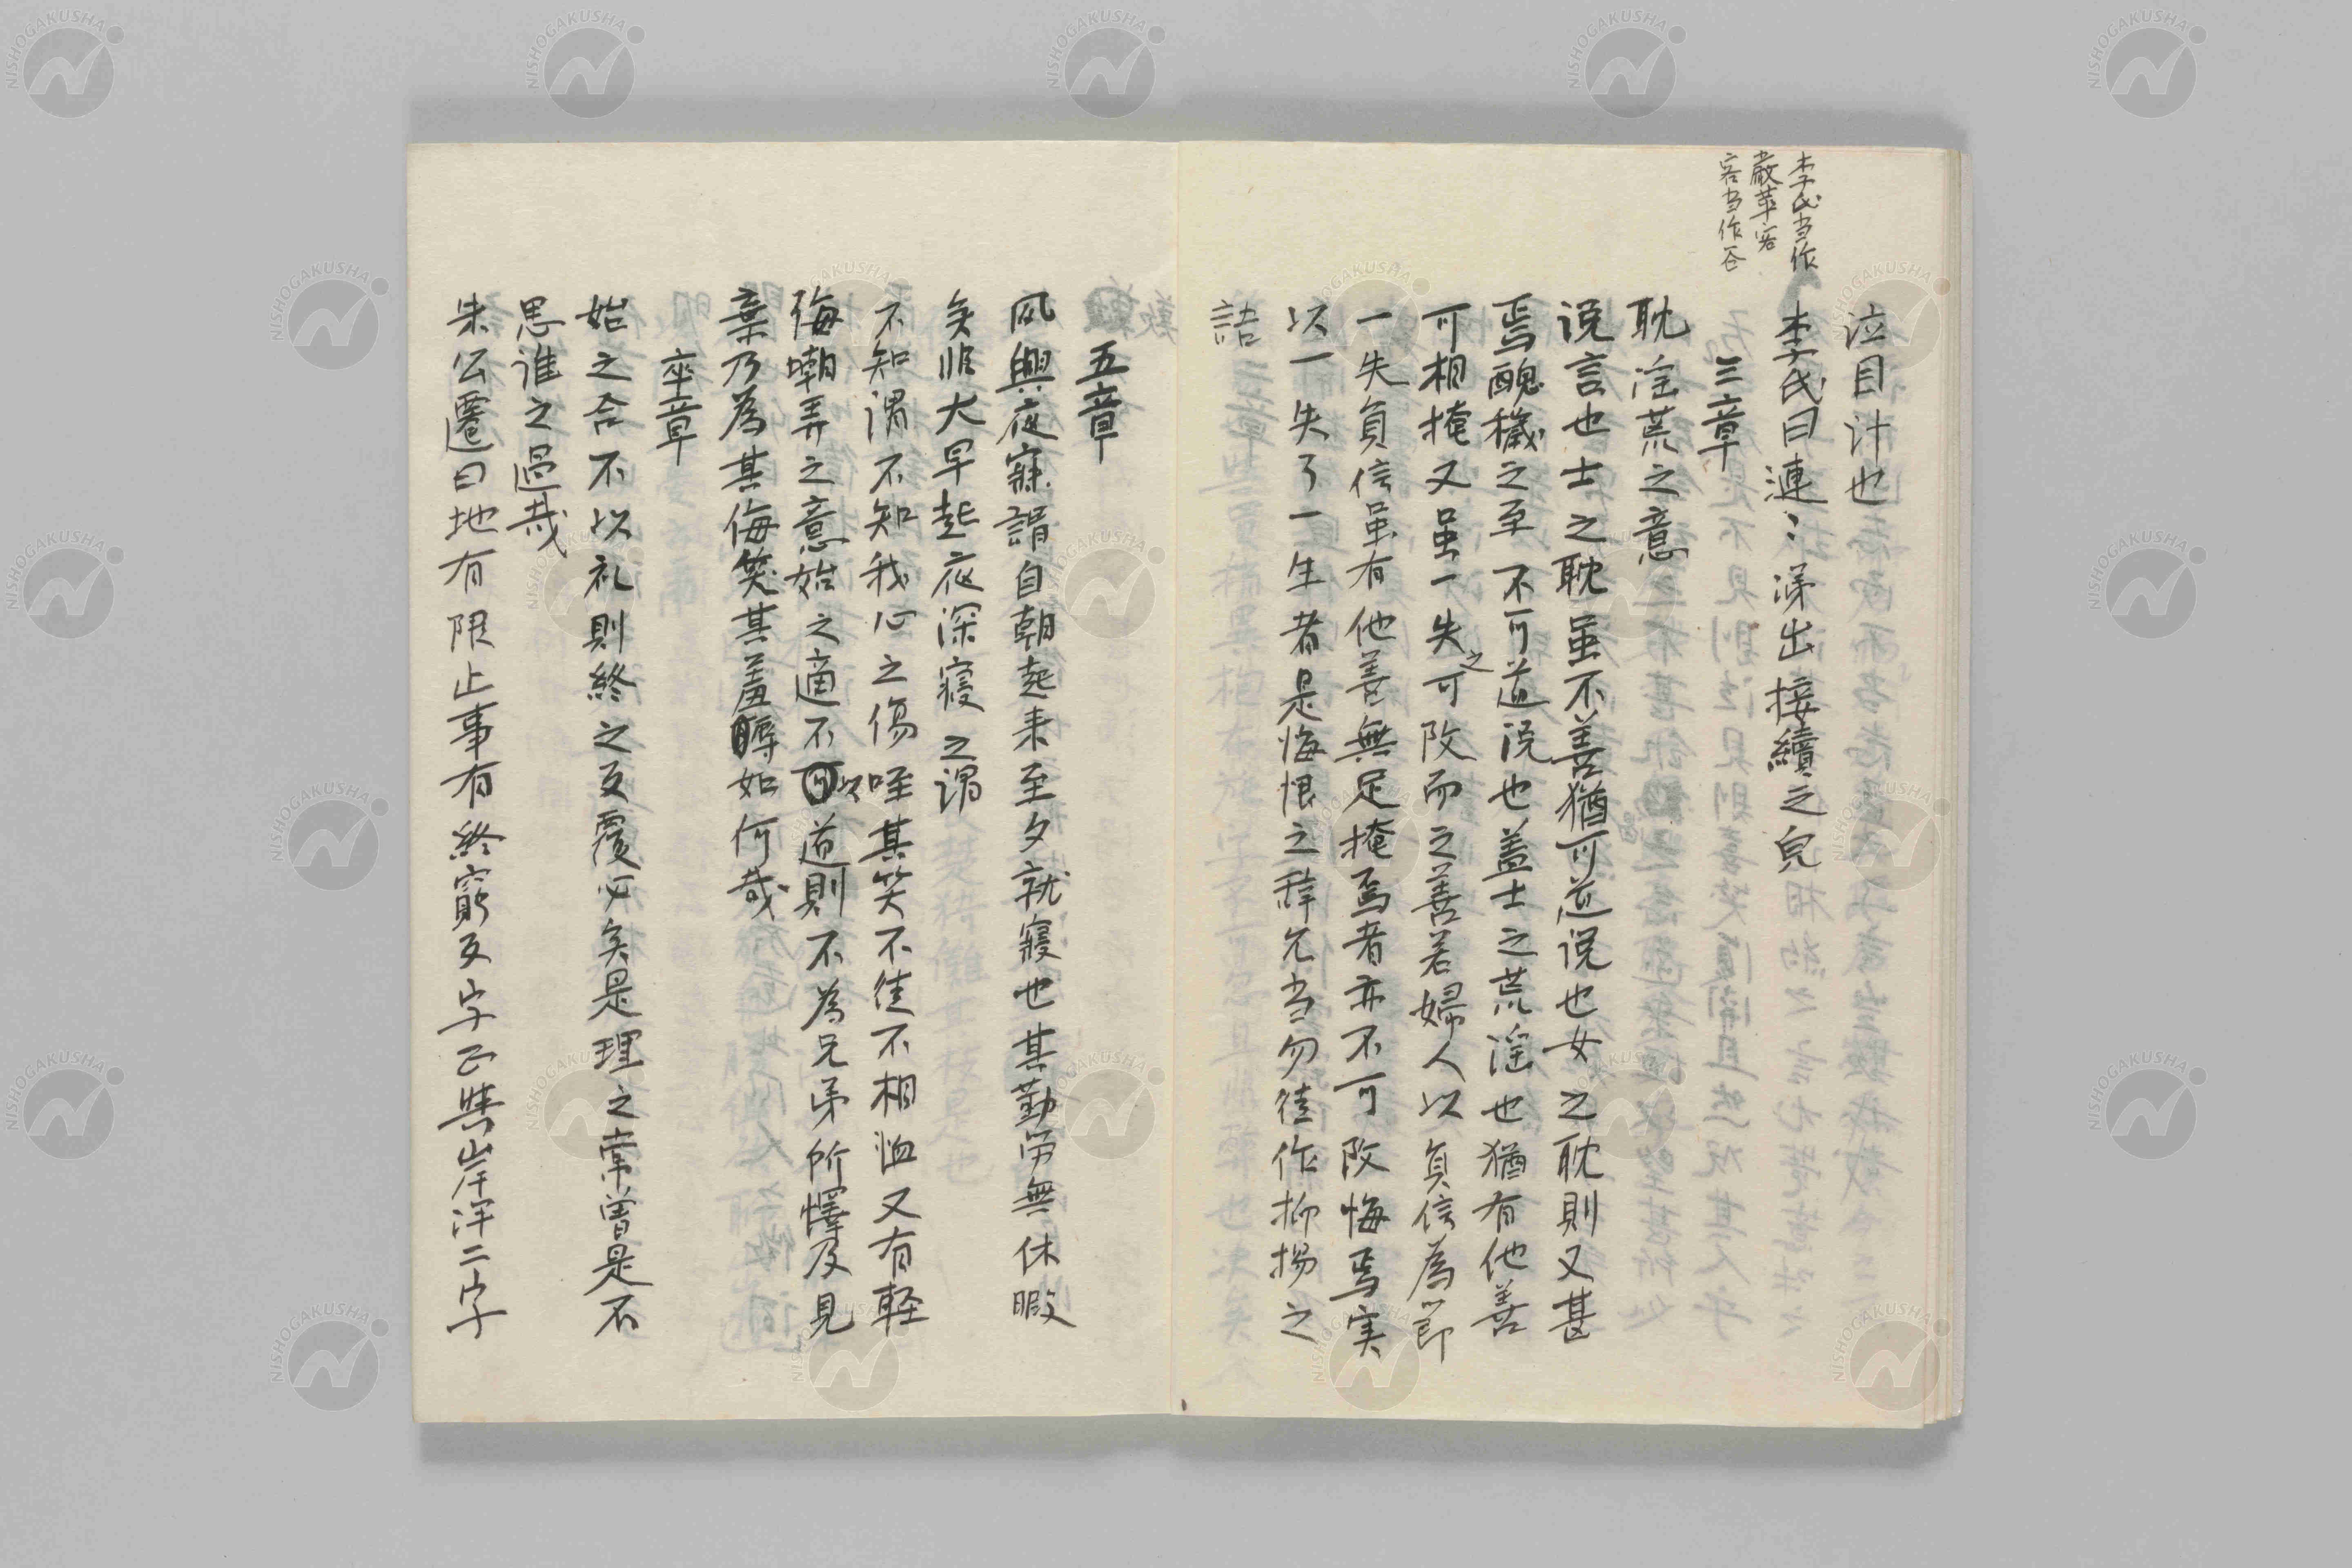 李氏当作
嚴華谷
容当作谷
泣目汁也
李氏曰漣〻涕出接續之皃
三章
耽淫荒之意
説言也士之耽虽不善猶可道説也女之耽則又甚
焉醜穢之至不可道説也盖士之荒淫也猶有他善
可相掩又虽一失之可改而之善若婦人以貞信為節
一失貞信虽有他善無足掩焉者亦不可改悔焉実
以一失了一生者是悔恨之辞尤当勿徒作抑揚之
語
五章
夙興夜寐謂自朝起来至夕就寢也其勤労無休暇
矣非大早起夜深寝之謂
不知謂不知我心之傷咥其笑不徒不相恤又有軽
侮嘲弄之意始之適不以道則不為兄弟所懌及見
棄乃為其侮笑其羞辱如何哉
卒章
始之合不以礼則終之反覆必矣是理之常曽是不
思誰之過哉
朱公遷曰地有限止事有終窮反字正與岸泮二字
NISHOGAKUSHA